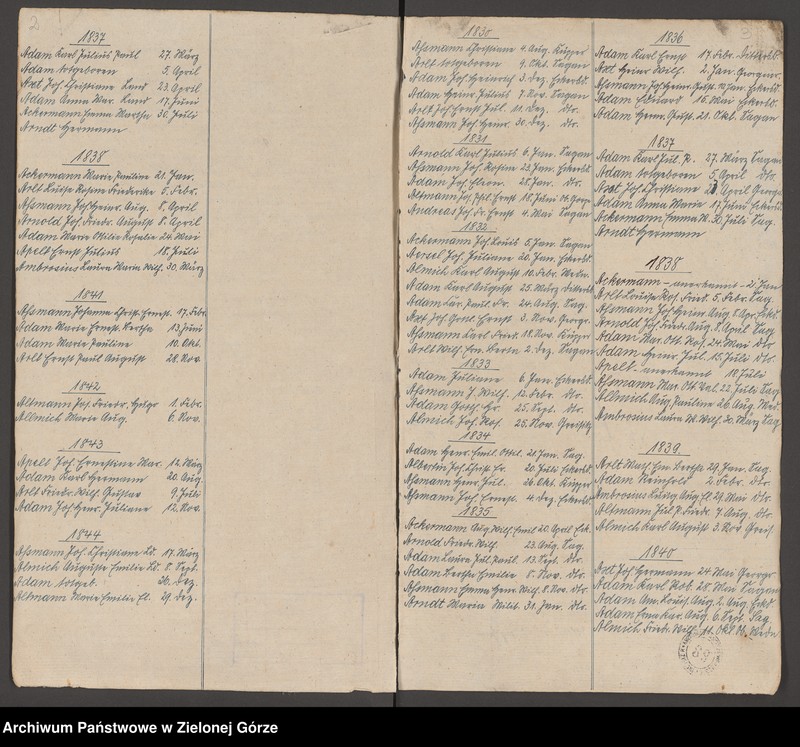 2
1837
Adam Karl Julius Paul 27. März
Adam totgeboren 5. April
Axt Joh. Christiane Lund 23. April
Adam Anna Mar. Lund 17. Juni
Ackermann Emma Martha 30. Juli
Arndt Hermann
1838
Ackermann Marie Pauline 21. Jan.
Arlt Luise Rosine Friederike 5. Febr.
Aßmann Joh. Heinr. Aug. 8. April
Arnold Joh. Friedr. August 8. April
Adam Marie Otilie Rosalie 24. Mai
Apelt Ernst Julius 18. Juli
Ambrosius Laura Maria Wilh. 30. März
1841
Aßmann Johanna Christ. Ernest. 17. Febr.
Adam Marie Ernest. Bertha 13. Juni
Adam Marie Pauline 10. Okt.
Arlt Ernst Paul August 28. Nov.
1842
Altmann Joh. Friedr. 1. Febr.
Allmich Marie Aug. 6. Nov.
1843
Apelt Joh. Ernestine Mar. 12. März
Adam Karl Hermann 20. Aug.
Arlt Friedr. Wilh. Gustav 9. Juli
Adam Joh. Henr. Juliane 12. Nov.
1844
Aßmann Joh. Christiane Ld. 17. März
Almich Auguste Emilie Ld. 8. Sept.
Adam totgeb. 26. Dez.
Altmann Marie Emilie El. 29. Dez.
1830
Aßmann Christiane 4. Aug. Küpper
Arlt totgeboren 9. Okt. Sagan
Adam Joh. Heinrich 3. Dez. Eckersd.
Adam Heinr. Julius 7. Nov. Sagan
Arlt Joh. Ernst Jul. 11. Dez. dtr.
Aßmann Joh. Heinr. 30. Dez. dtr.
1831
Arnold Karl Julius 6. Jan. Sagan
Aßmann Joh. Rosine 23. Jan. Eckersd.
Adam Joh. Eleon. 28. Jan. dtr.
Altmann Joh. Ernst 18. Juni
Andreas Joh. Fr. Ernst 4. Mai Sagan
1832
Ackermann Joh. Louis 5. Jan. Sagan
Joh. Juliane 20. Jan. Eckersd.
Almich Karl August 10. Febr.
Adam Karl August 25. März
Adam Car. Paul. Fr. 24. Aug. Sag.
Axt Joh. Gottl. Ernst 3. Nov.
Aßmann Karl Fried. 18. Nov. Küpper
Arlt Wilh. Em. Berta 2. Dez. Sagan
1833
Adam Juliane 6. Jan. Eckersd.
Aßmann J. Wilh. 12. Febr. dtr.
Adam Gottl. Hr. 25. Sept. dtr.
Almich Joh. Ros. 25. Nov.
1834
Adam Henr. Emil. Ottil. 21. Jan. Sag.
Joh. Christ. Fr. 20. Juli Eckersd.
Aßmann Henr. Jul. 26. Okt. Küpper
Aßmann Joh. Ernest. 4. Dez. Eckersd.
1835
Ackermann Aug. Wilh. Emil 20. April Eck.
Arnold Friedr. Wilh. 23. Aug. Sag.
Adam Laura Jul. Paul. 13. Sept. dtr.
Adam Bertha Emilie 8. Nov. dtr.
Aßmann Emma Henr. Wilh. 8. Nov. dtr.
Arndt Maria 31. Jan. dtr.
1836
Adam Karl Ernst 17. Febr.
Axt Heinr. Wilh. 2. Jan.
Aßmann Joh. Heinr. Gust. 10. Jan. Eckersd.
Adam Eduard 16. Mai Eckersd.
Adam Herm. Gust. 21. Okt. Sagan
1837
Adam Karl Jul. P. 27. März Sagan
Adam totgeboren 5. April dtr.
Axt Joh. Christiane 23. April
Adam Anna Maria 17. Juni Eckersd.
Ackermann Emma M. 30. Juli Sag.
Arndt Hermann
1838
Ackermann - unerkannt - 21. Jan
Arlt Louise Ros. Fried. 5. Febr. Sag.
Aßmann Joh. Heinr. Aug. 8. Apr. Eckd.
Arnold Joh. Friedr. Aug. 8. April Sag.
Adam Mar. Ott. Ros. 24. Mai dtr.
Adam Heinr. Jul. 15. Juli dtr.
Apelt - unerkannt 18. Juli
Aßmann Mar. Ott. Val. 22. Juli Sag.
Allmich Aug. Pauline 26. Aug.
Ambrosius Laura M. Wilh. 30. März Sag
1839.
Arlt Math. Em. Bertha 29. Jan. Sag.
Adam Reinhold 2. Febr. dtr.
Ambrosius Aug. El. 29. Mai dtr.
Altmann Jul. P. Friedr. 7. Aug. dtr.
Almich Karl August 3. Nov
1840
Axt Joh. Hermann 24. Mai
Adam Karl Rob. 28. Mai Sagan
Adam Am. Louis. Aug. 2. Aug. Eckd
Adam Erna Kar. Aug. 6. Sept. Sag.
Almich Friedr. Wilh. 11. Okt.
Archiwum Państwowe w Zielonej Górze